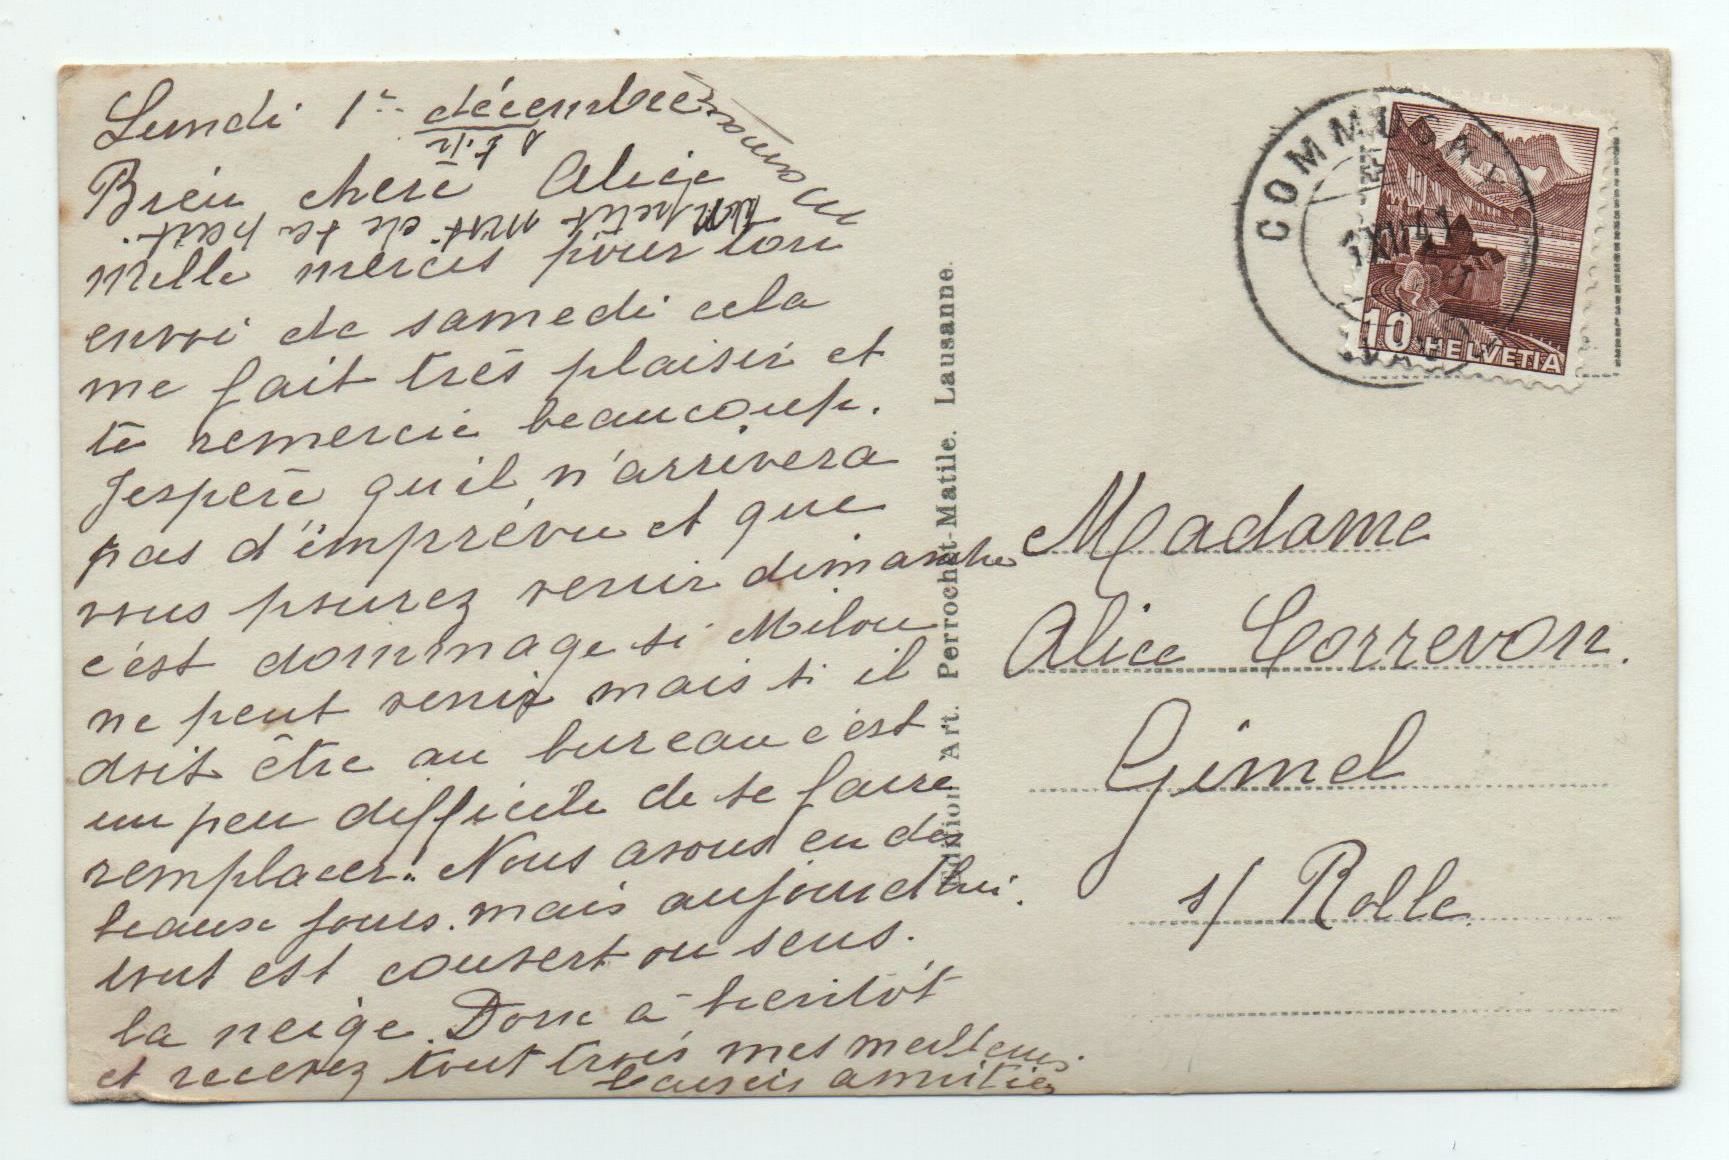 Lundi 1er décembre
Bien chère Alice
mille mercis pour ton
envoi de samedi cela
me fait très plaisir et
te remercie beaucoup.
J'espère qu'il n'arrivera
pas d'imprévu et que
vous pourez venir dimanche
c'est dommage si Milou
ne peut venir mais si il
doit être au bureau c'est
un peu difficile de se faire
remplacer. Nous avons eu des
beaux jours. mais aujourd'hui.
tout est couvert ou sous.
la neige. Donc à bientôt
et recevez tout trois mes meilleurs.
baisers amitiés
un petit mot de ta part.
maman
Edition Art. Perrochet-Matile. Lausanne.
COMMUGNY
1.XII.41
(VAUD)
10 HELVETIA
Madame
Alice Correvon.
Gimel
s/ Rolle.